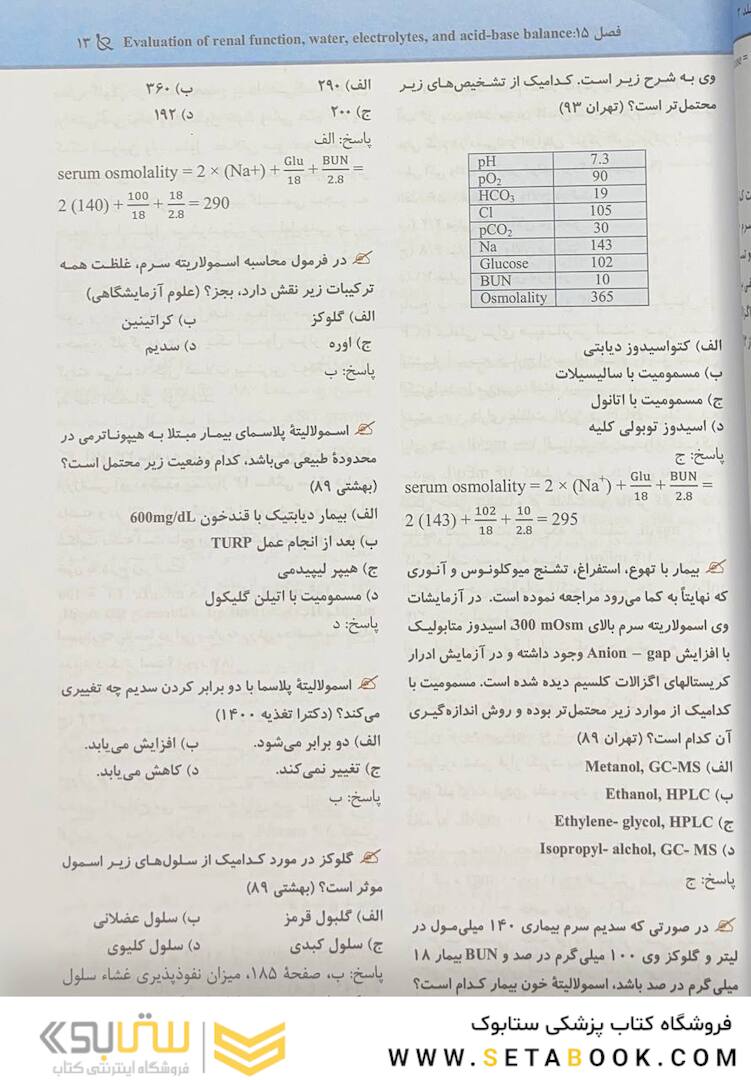 فصل ۱۵: Evaluation of renal function, water, electrolytes, and acid-base balance ۱۳
وی به شرح زیر است. کدامیک از تشخیص‌های زیر
محتمل‌تر است؟ (تهران ۹۳)
pH 7.3
pO₂ 90
HCO₃ 19
Cl 105
pCO₂ 30
Na 143
Glucose 102
BUN 10
Osmolality 365
الف) کتواسیدوز دیابتی
ب) مسمومیت با سالیسیلات
ج) مسمومیت با اتانول
د) اسیدوز توبولی کلیه
پاسخ: ج
serum osmolality = 2 × (Na⁺) + Glu/18 + BUN/2.8 =
2 (143) + 102/18 + 10/2.8 = 295
بیمار با تهوع، استفراغ، تشنج میوکلونوس و آنوری
که نهایتاً به کما می‌رود مراجعه نموده است. در آزمایشات
وی اسمولاریته سرم بالای 300 mOsm، اسیدوز متابولیک
با افزایش Anion – gap وجود داشته و در آزمایش ادرار
کریستالهای اگزالات کلسیم دیده شده است. مسمومیت با
کدامیک از موارد زیر محتمل‌تر بوده و روش اندازه‌گیری
آن کدام است؟ (تهران ۸۹)
الف) Metanol, GC-MS
ب) Ethanol, HPLC
ج) Ethylene- glycol, HPLC
د) Isopropyl- alchol, GC- MS
پاسخ: ج
در صورتی که سدیم سرم بیماری ۱۴۰ میلی‌مول در
لیتر و گلوکز وی ۱۰۰ میلی‌گرم در صد و BUN بیمار ۱۸
میلی‌گرم در صد باشد، اسمولالیتهٔ خون بیمار کدام است؟
الف) ۲۹۰ ب) ۳۶۰
ج) ۲۰۰ د) ۱۹۲
پاسخ: الف
serum osmolality = 2 × (Na+) + Glu/18 + BUN/2.8 =
2 (140) + 100/18 + 18/2.8 = 290
در فرمول محاسبه اسمولاریته سرم، غلظت همه
ترکیبات زیر نقش دارد، بجز؟ (علوم آزمایشگاهی)
الف) گلوکز ب) کراتینین
ج) اوره د) سدیم
پاسخ: ب
اسمولالیتهٔ پلاسمای بیمار مبتلا به هیپوناترمی در
محدودهٔ طبیعی می‌باشد، کدام وضعیت زیر محتمل است؟
(بهشتی ۸۹)
الف) بیمار دیابتیک با قندخون 600mg/dL
ب) بعد از انجام عمل TURP
ج) هیپر لیپیدمی
د) مسمومیت با اتیلن گلیکول
پاسخ: د
اسمولالیتهٔ پلاسما با دو برابر کردن سدیم چه تغییری
می‌کند؟ (دکترا تغذیه ۱۴۰۰)
الف) دو برابر می‌شود. ب) افزایش می‌یابد.
ج) تغییر نمی‌کند. د) کاهش می‌یابد.
پاسخ: ب
گلوکز در مورد کدامیک از سلول‌های زیر اسمول
موثر است؟ (بهشتی ۸۹)
الف) گلبول قرمز ب) سلول عضلانی
ج) سلول کبدی د) سلول کلیوی
پاسخ: ب، صفحهٔ ۱۸۵، میزان نفوذپذیری غشاء سلول
فروشگاه کتاب پزشکی ستابوک
WWW.SETABOOK.COM
ستابوک
فروشگاه اینترنتی کتاب